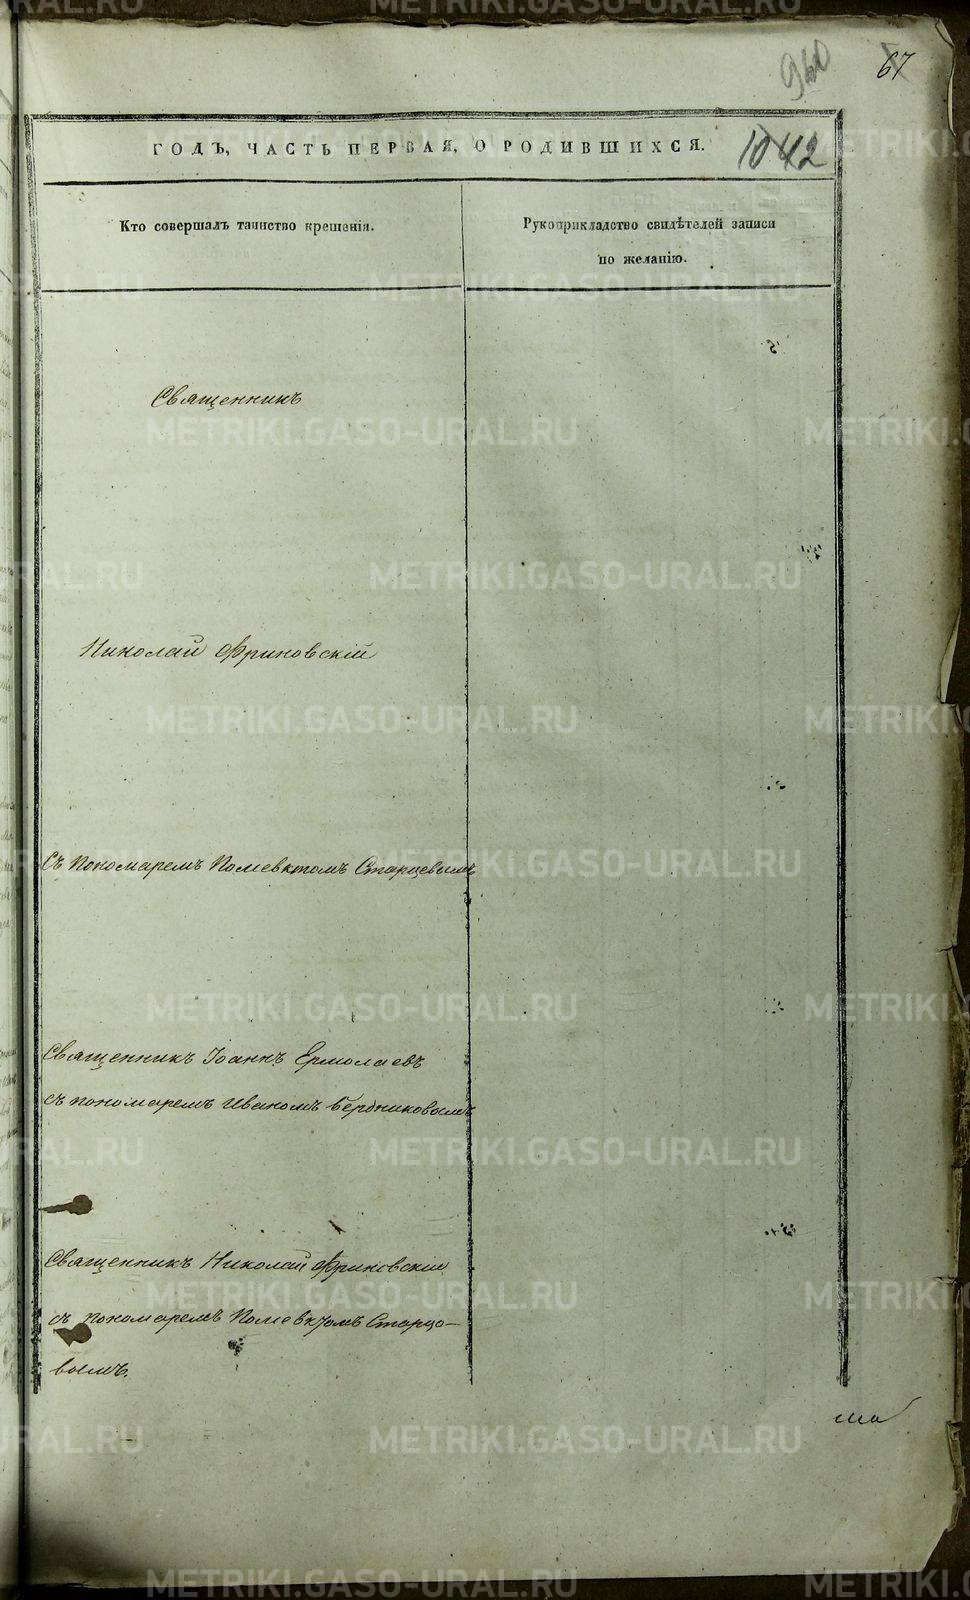 67
960
ГОДЪ, ЧАСТЬ ПЕРВАЯ, О РОДИВШИХСЯ.
1042
Кто совершалъ таинство крещенія.
Рукоприкладство свидѣтелей записи
по желанію.
Священникъ
Николай Фриновскій
Съ пономаремъ Полиевктомъ Старцевымъ
Священникъ Іоаннъ Ермолаевъ
съ пономаремъ Иваномъ Бердниковымъ
Священникъ Николай Фриновскій
съ пономаремъ Полиевктомъ Старцо-
вымъ.
METRIKI.GASO-URAL.RU